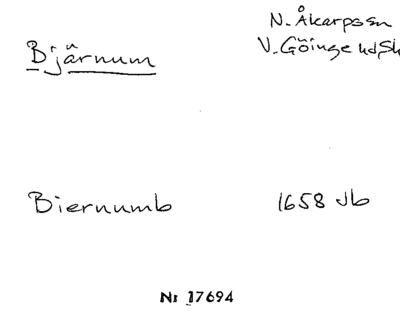 N. Åkarps sn
Bjärnum
V. Göinge hd Sk
Biernumb 1658 Jb
Nr 17694